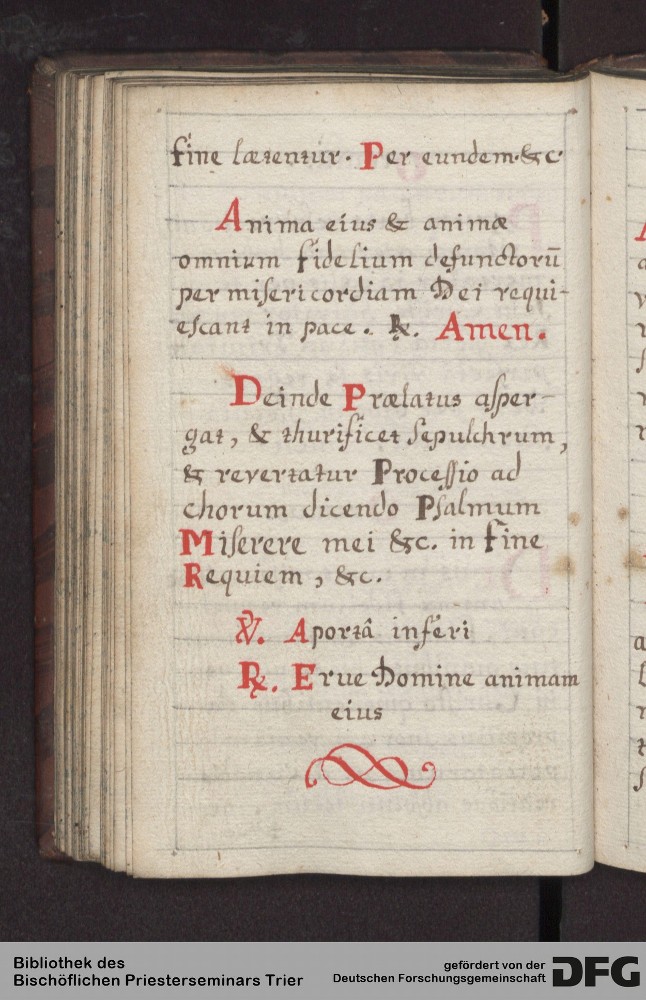 fine lætentur. Per eundem. &c
Anima eius & animæ
omnium fidelium defunctorū
per miſericordiam Dei requi-
eſcant in pace. ℟. Amen.
Deinde Prælatus aſper-
gat, & thurificet Sepulchrum,
& revertatur Proceſſio ad
chorum dicendo Pſalmum
Miſerere mei &c. in fine
Requiem, &c.
℣. Aportâ inferi
℟. Erue Domine animam
eius
Bibliothek des
Bischöflichen Priesterseminars Trier
gefördert von der
Deutschen Forschungsgemeinschaft
DFG